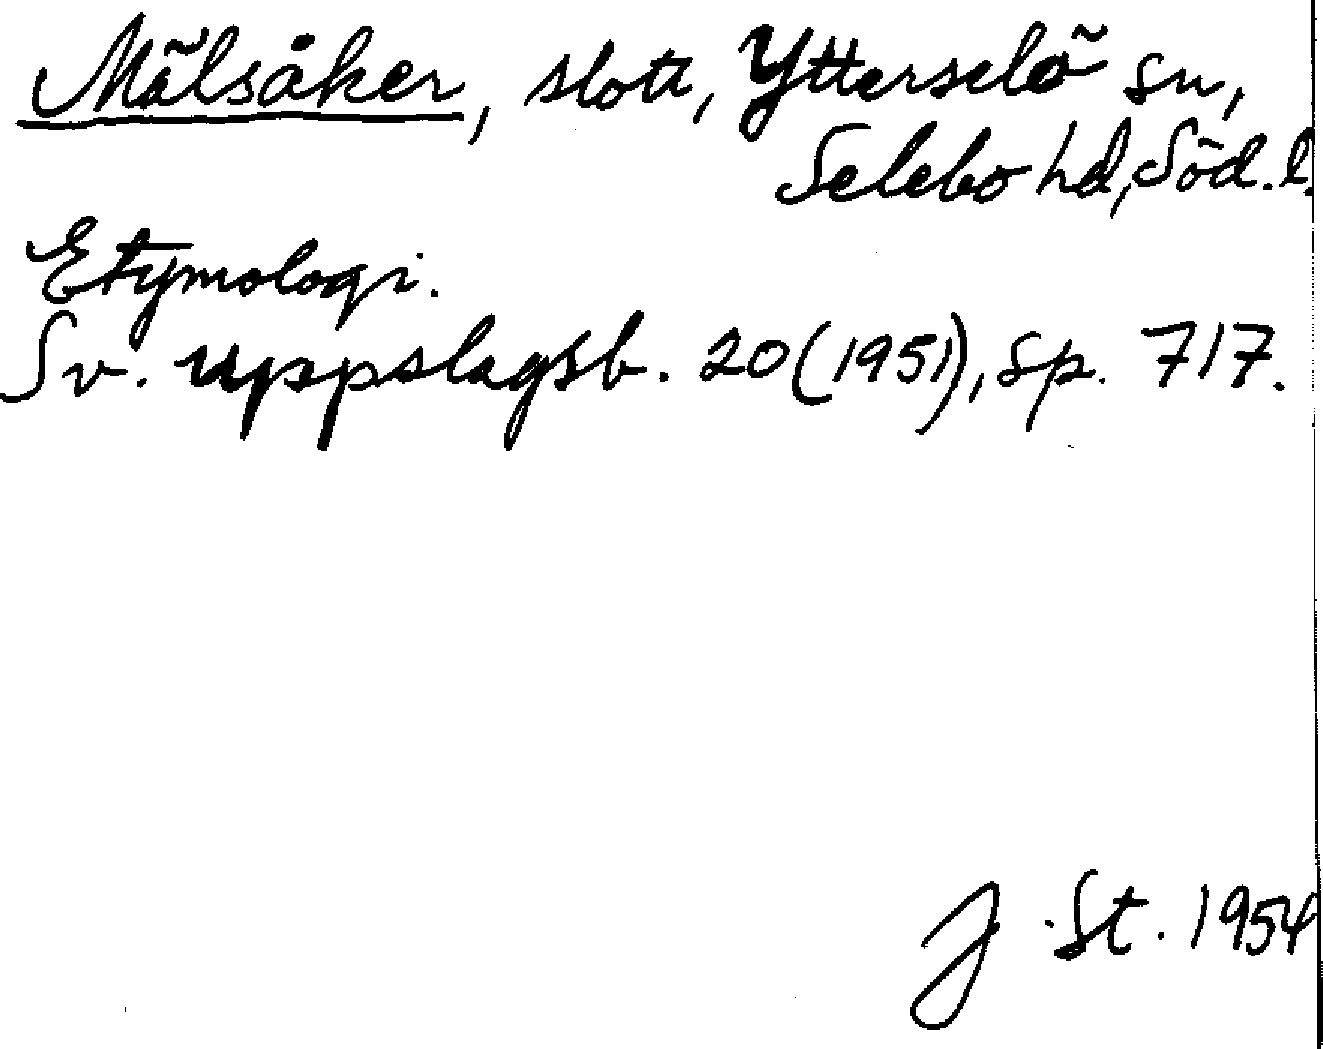 Mälsåker, slott, Ytterselö sn,
Selebo hd, Söd. l.
Etymologi.
Sv. uppslagsb. 20 (1951), sp. 717.
J. St. 1954